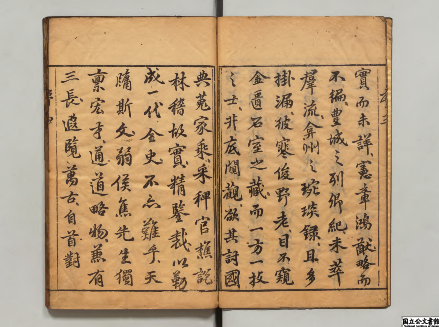 實而未詳憲章鴻猷略而
不徧豐城之列卿紀未萃
羣流弇州之琬琰録且多
掛漏彼寒俊野老目不窺
金匱石室之藏而一方一技
之士非底闊觀欲其討國
典蒐家乘采稗官樵說
林稽故實精鑒裁以勒
成一代全史不亦難乎天
牖斯文弱侯焦先生獨
稟宏才通道略物兼有
三長遐覽萬古自首對
国立公文書館